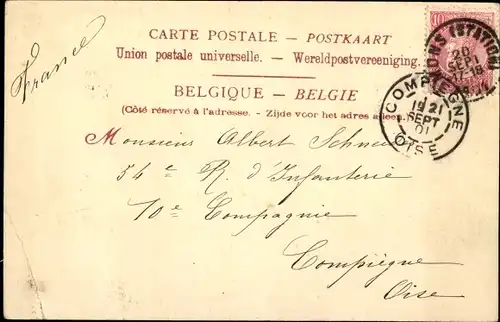 France
CARTE POSTALE — POSTKAART
Union postale universelle. — Wereldpostvereeniging.
BELGIQUE — BELGIE
(Côté réservé à l'adresse. - Zijde voor het adres alleen.)
10
MONS (STATION)
20
SEPT
17-18
COMPIEGNE
19 21
SEPT
01
OISE
Monsieur Albert
54e R. d'Infanterie
10e Compagnie
Compiègne
Oise